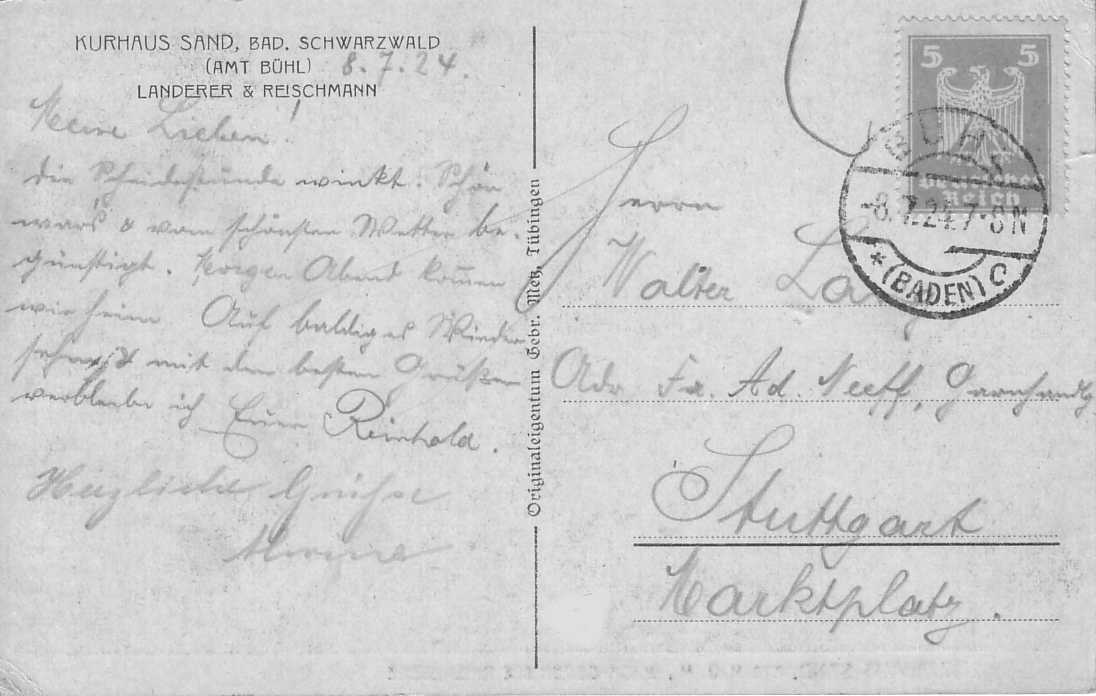 KURHAUS SAND, BAD. SCHWARZWALD
(AMT BÜHL) 8.7.24.
LANDERER & REISCHMANN
Meine Lieben!
die Scheidestunde winkt. Schön
wars & vom schönsten Wetter be-
günstigt. Morgen Abend kommen
wir heim. Auf baldiges Wieder
sehn & mit den besten Grüßen
verbleibe ich Euer Reinhold.
Herzliche Grüße
Originaleigentum Gebr. Metz, Tübingen
5 5
Deutsches
Reich
BÜHL
-8.7.24.7-8N
*(BADEN) C
Herrn
Walter
Adr Fa. Ad. Neeff, Garnhandlg
Stuttgart
Marktplatz.